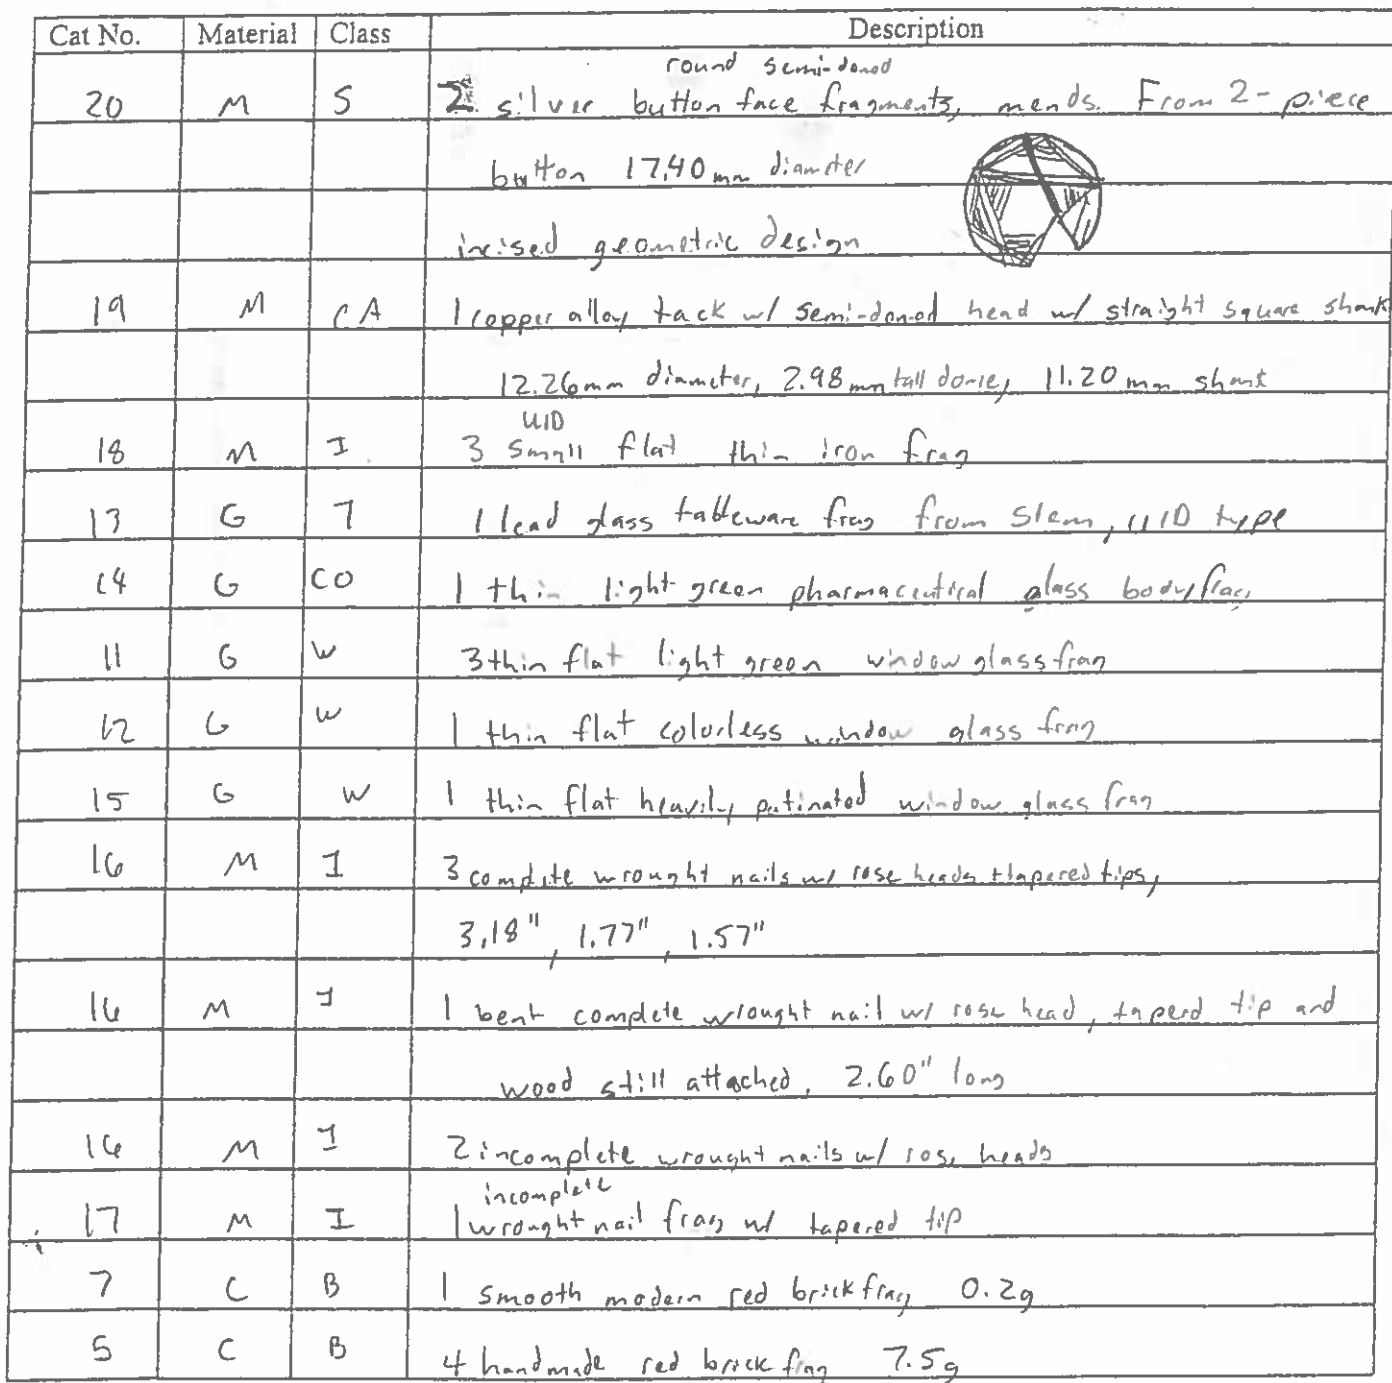 Cat No. Material Class Description
round semi-domed
20 M S 2 silver button face fragments, mends. From 2-piece
button 17.40 mm diameter
incised geometric design
19 M CA 1 copper alloy tack w/ semi-domed head w/ straight square shank
12.26mm diameter, 2.98mm tall dome, 11.20 mm shank
UID
18 M I 3 small flat thin iron frag
13 G T 1 lead glass tableware frag from stem, UID type
14 G CO 1 thin light green pharmaceutical glass body frag
11 G W 3 thin flat light green window glass frag
12 G W 1 thin flat colorless window glass frag
15 G W 1 thin flat heavily patinated window glass frag
16 M I 3 complete wrought nails w/ rose heads + tapered tips,
3.18", 1.77", 1.57"
16 M I 1 bent complete wrought nail w/ rose head, taperd tip and
wood still attached, 2.60" long
16 M I 2 incomplete wrought nails w/ rose heads
incomplete
17 M I 1 wrought nail frag w/ tapered tip
7 C B 1 smooth modern red brick frag 0.2g
5 C B 4 handmade red brick frag 7.5g